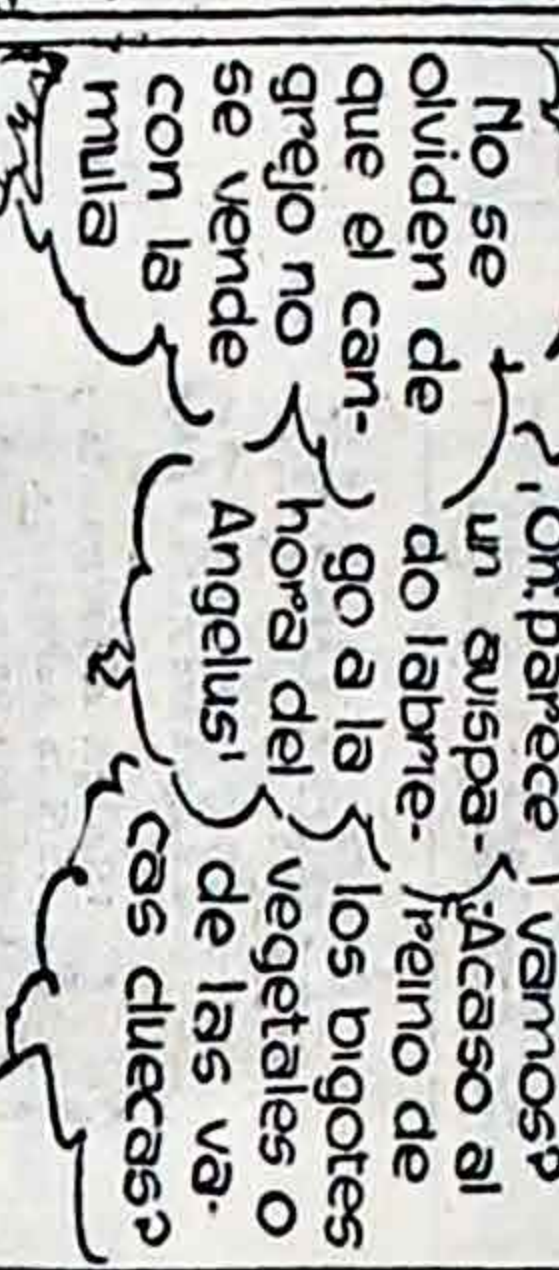 No se
olviden de
que el can-
grejo no
se vende
con la
mula
¡Oh, parece
un avispa-
do labrie-
go a la
hora del
Angelus!
vamos?
¿Acaso al
reino de
los bigotes
vegetales o
de las va-
cas cluecas?